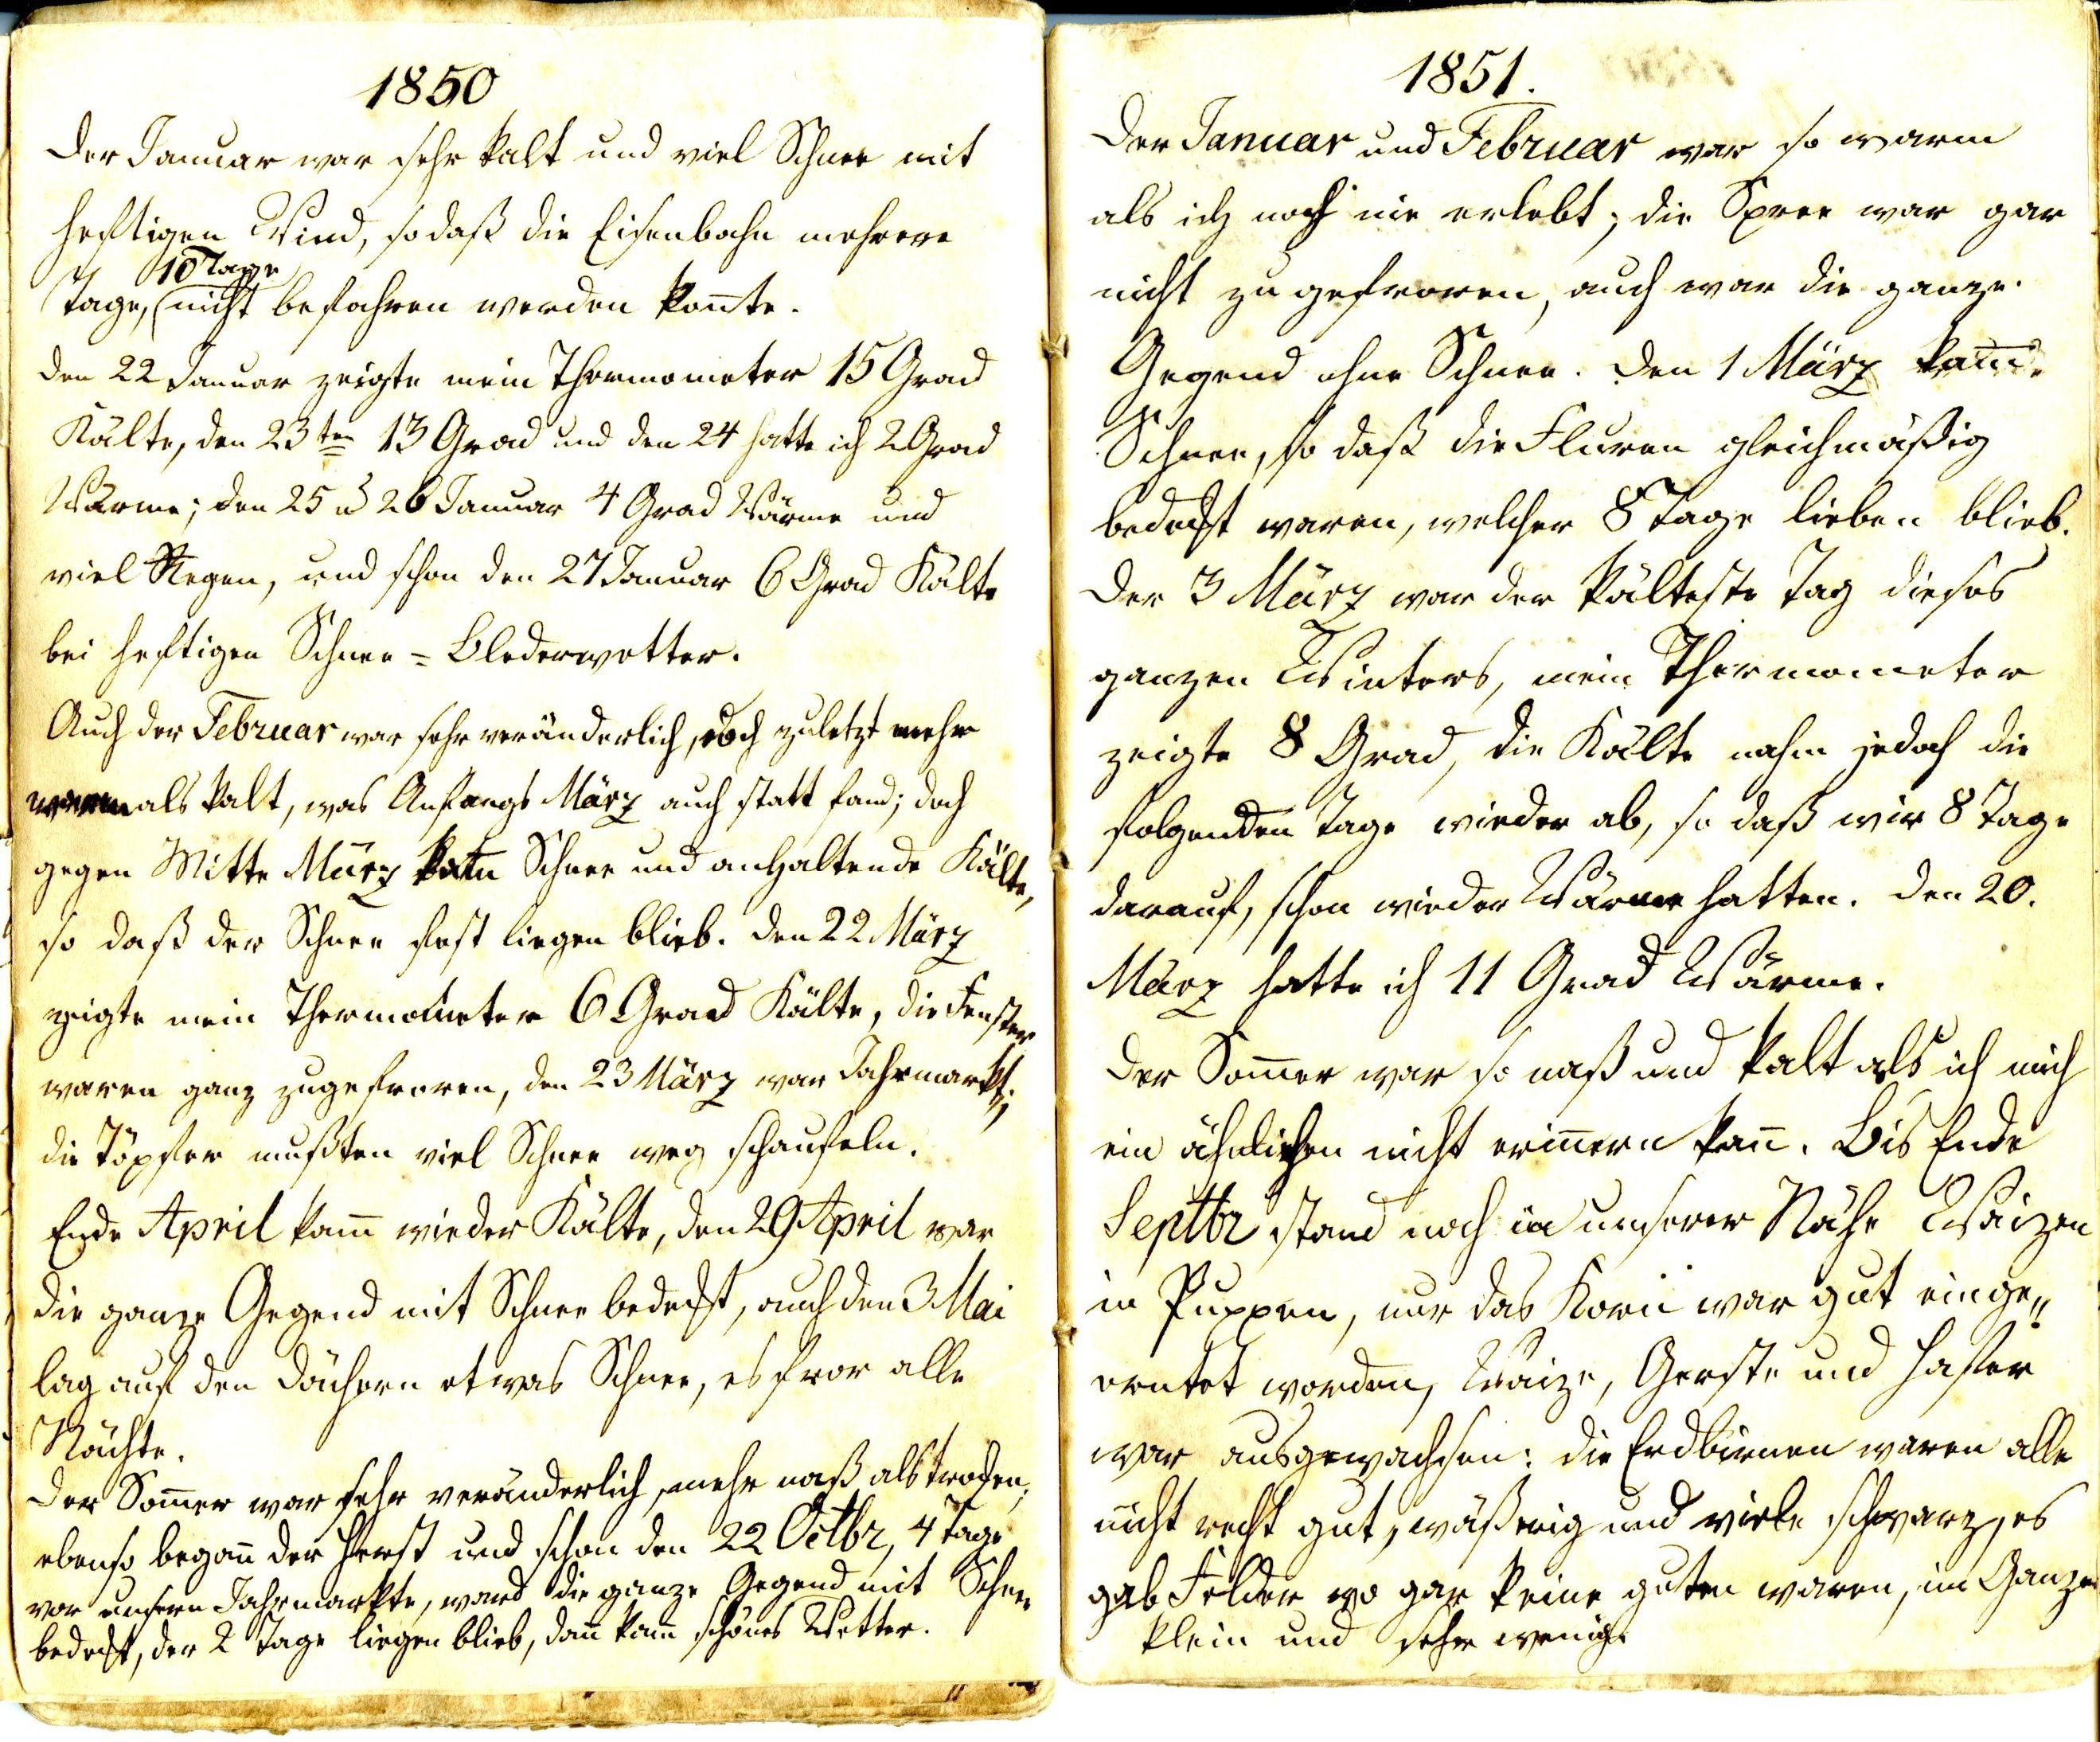 1850
Der Januar war sehr kalt und viel Schnee mit
heftigen Wind, so daß die Eisenbahn mehrere
10 Tage
Tage, (nicht befahren werden kon̄te.
den 22 Januar zeigte mein Thermometer 15 Grad
Kälte, den 23ten 13 Grad und den 24 hatte ich 2 Grad
Wärme; den 25 u 26 Januar 4 Grad Wärme und
viel Regen, und schon den 27 Januar 6 Grad Kälte
bei heftigen Schnee =
Auch der Februar war sehr veränderlich, doch zuletzt mehr
warm als kalt, was Anfangs März auch statt fand; doch
gegen Mitte März kam Schnee und anhaltende Kälte,
so daß der Schnee fest liegen blieb. den 22 März
zeigte mein Thermometer 6 Grad Kälte, die Fenster
waren ganz zugefroren, den 23 März war Jahrmarkt;
die Töpfer mußten viel Schnee weg schaufeln.
Ende April kam̄ wieder Kälte, den 29 April war
die ganze Gegend mit Schnee bedeckt, auch den 3 Mai
lag auf den Dächern etwas Schnee, es fror alle
Nächte.
Der Som̄er war sehr veränderlich, mehr naß als trocken;
ebenso began̄ der Herst und schon den 22 Octbr, 4 Tage
vor unsern Jahrmarkte, ward die ganze Gegend mit Schnee
bedeckt, der 2 Tage liegen blieb, dan̄ kam̄ schönes Wetter.
1851.
Der Januar und Februar war so warm
als ich noch nie erlebt; die Spree war gar
nicht zu gefroren, auch war die ganze
Gegend ohne Schnee. Den 1 März kam̄
Schnee, so daß die Fluren gleichmäßig
bedeckt waren, welcher 8 Tage lieben blieb.
Der 3 März war der kälteste Tag dieses
ganzen Winters, mein Thermometer
zeigte 8 Grad, die Kälte nahm jedoch die
folgenden Tage wieder ab, so daß wir 8 Tage
darauf, schon wieder Wärme hatten. den 20.
März hatte ich 11 Grad Wärme.
Der Som̄er war so naß und kalt als ich mich
ein ähnlichen nicht erin̄ern kan̄. Bis Ende
Septbr stand noch in unserer Nähe Waizen
in Puppen, nur das Korn war gut einge„
erntet worden, Waize, Gerste und Hafer
war ausgewachsen: die Erdbirnen waren alle
nicht recht gut, wäßerig und viele schwarz, es
gab Felder wo gar keine guten waren, im Ganzen
klein und sehr wenig.